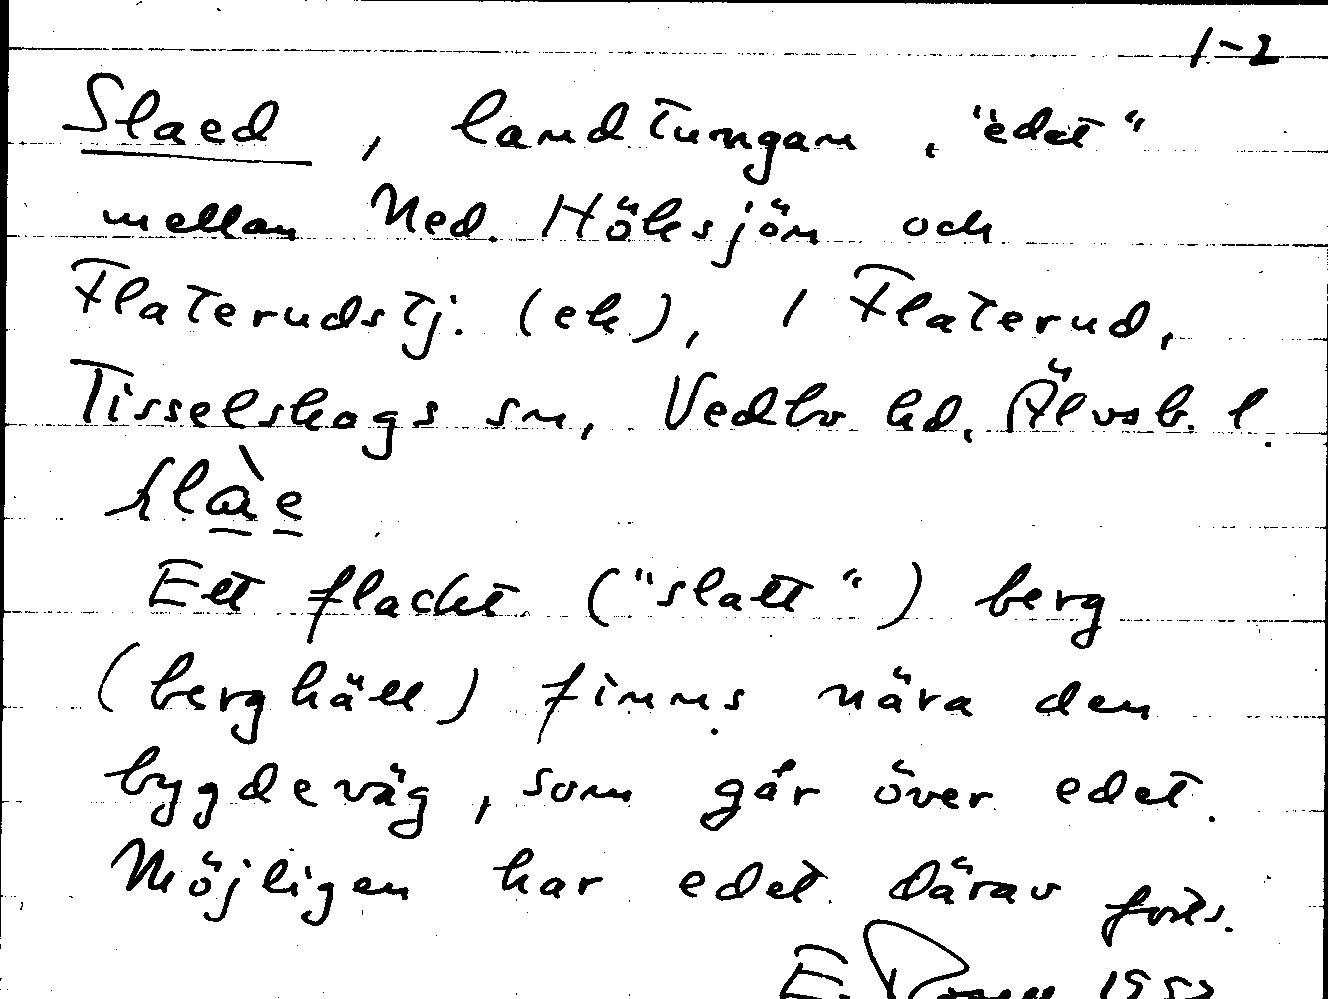 1-2
Slaed, landtungan, "edet"
mellan Ned. Höksjön och
Flaterudstj. (ek), i Flaterud,
Tisselskogs sn, Vedbo hd, Älvsb. l.
slàe
Ett flackt ("slätt") berg
(berghäll) finns nära den
bygdeväg, som går över edet.
Möjligen har edet därav forts.
E. 1953